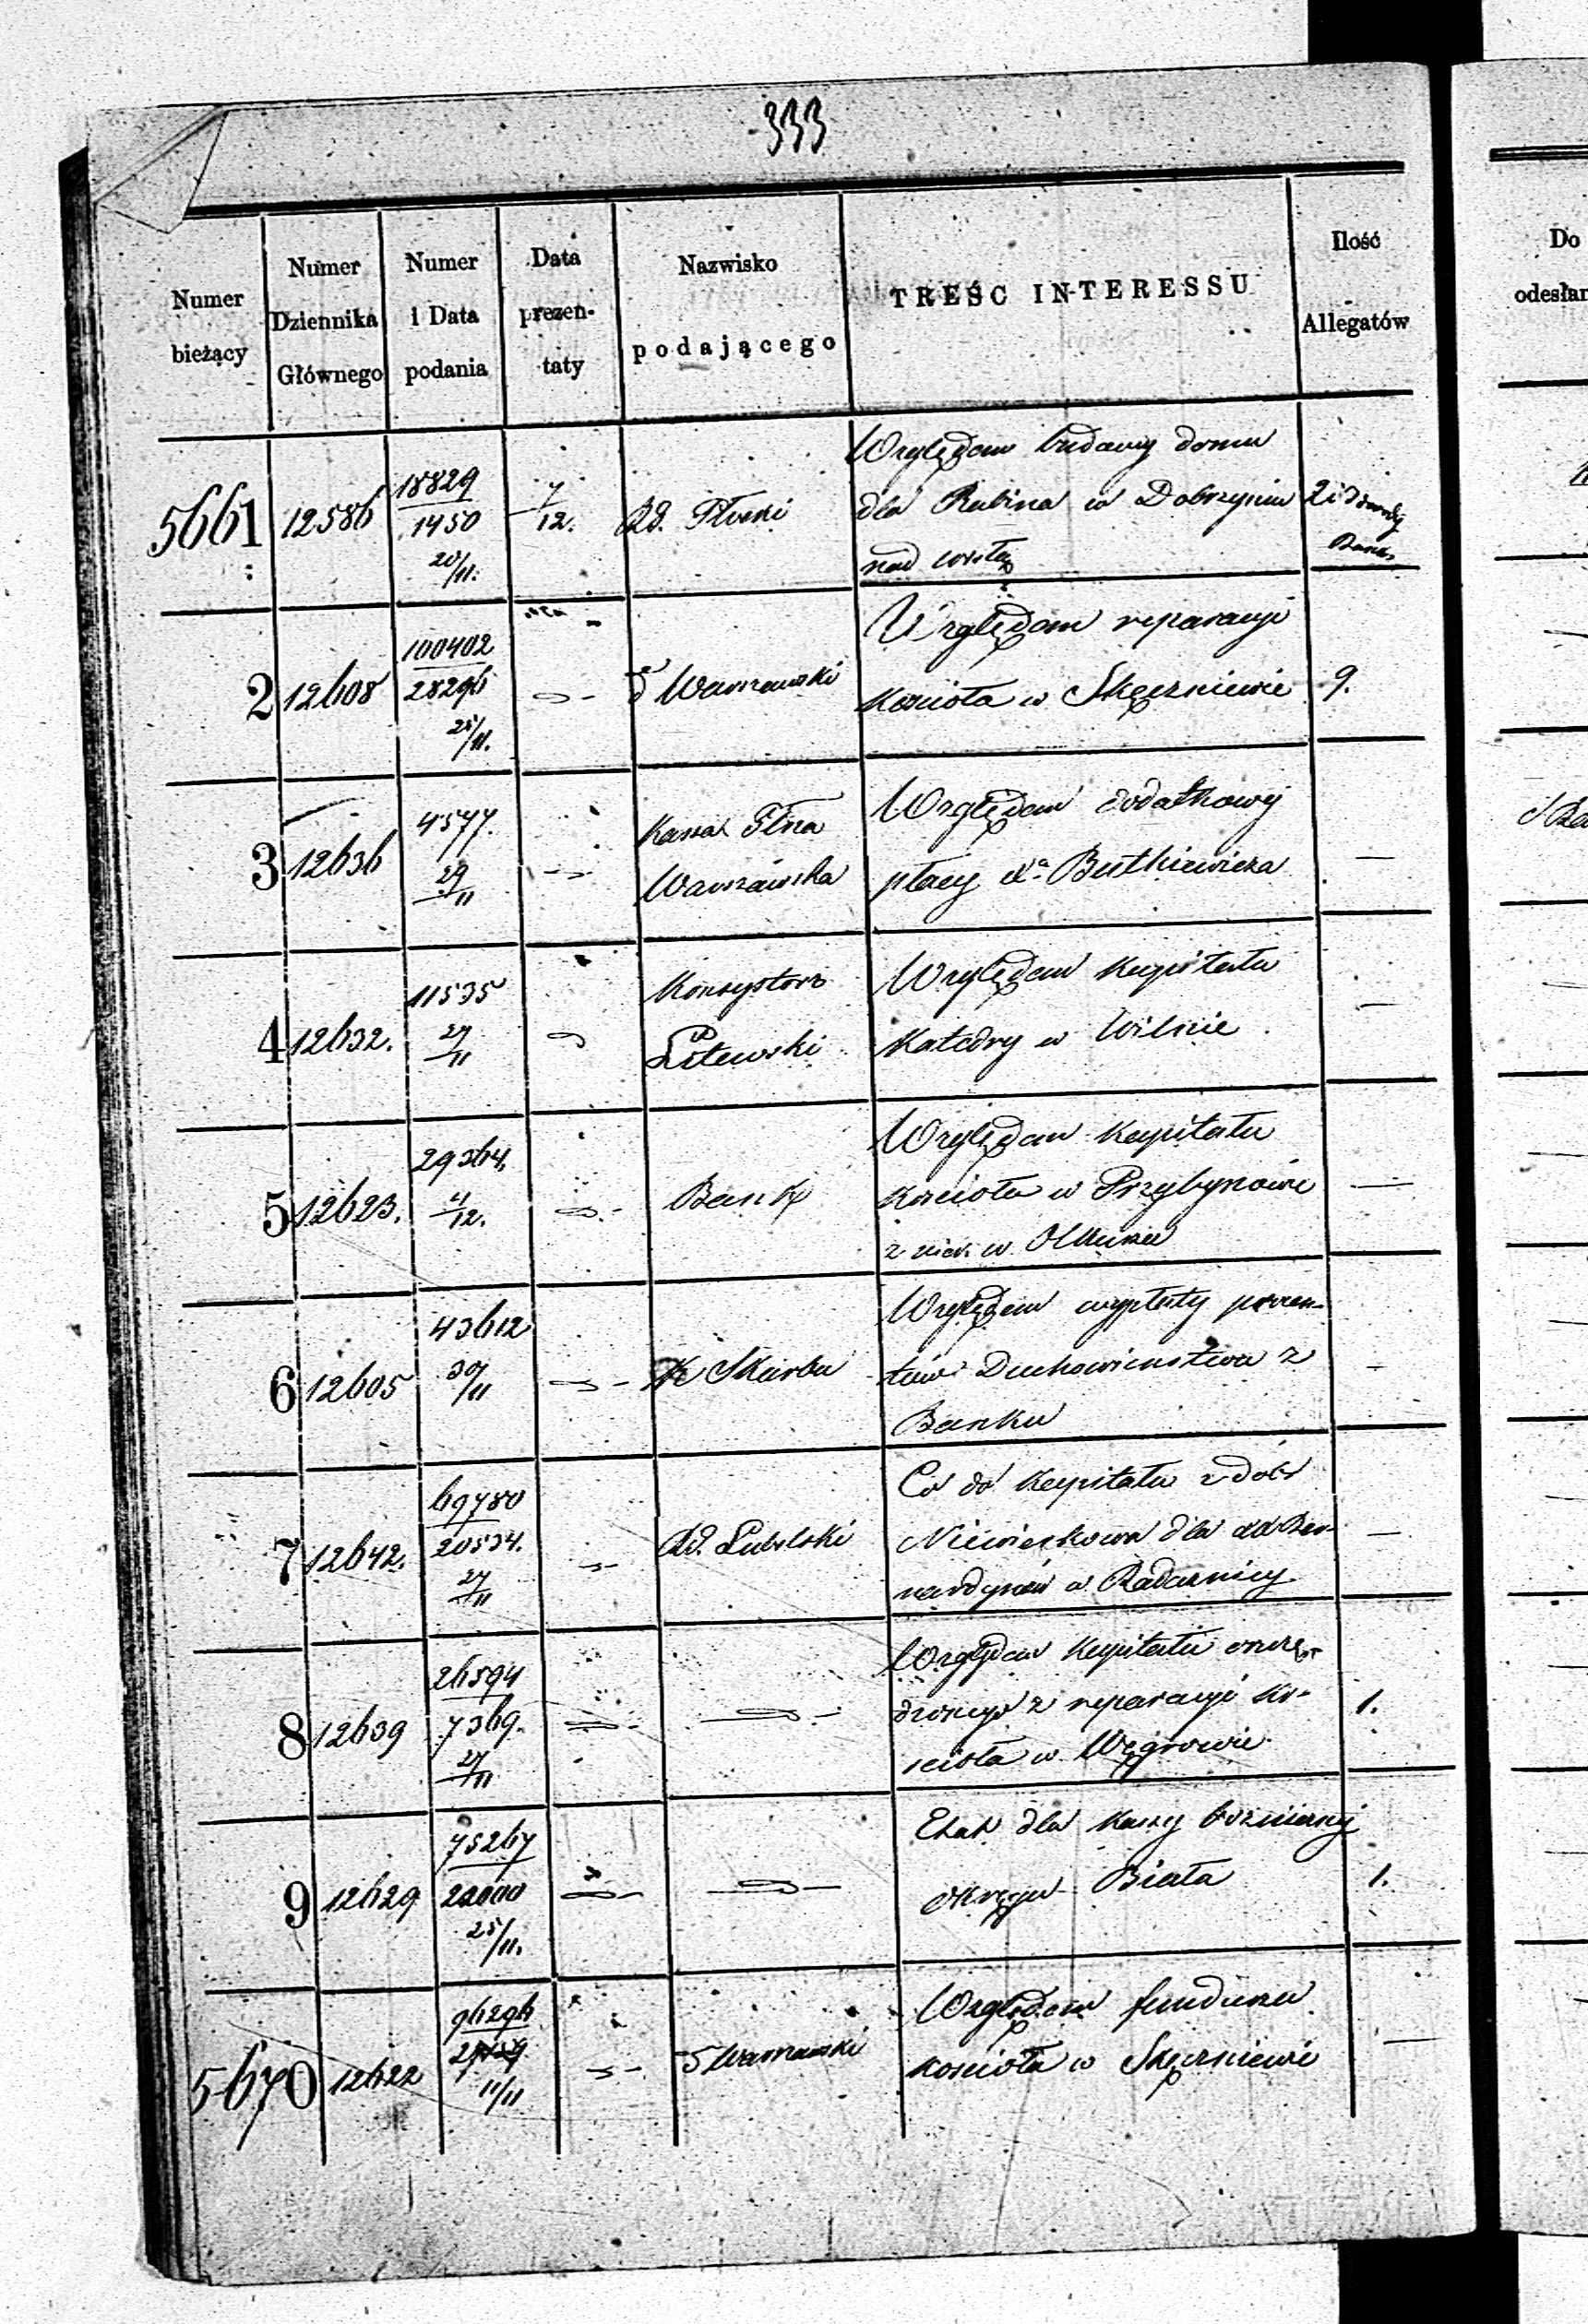 333
Numer bieżący
Numer Dziennika Głównego
Numer i Data podania
Data prezen- taty
Nazwisko podającego
TREŚC INTERESSU
Ilość Allegatów
Do
odesłan
5661 12586 18829 1450 20/11. 7/12. Rd. Płocki
Względem budowy domu
dla Rabina w Dobrzyniu
nad Wisłą
2
2 12608 100402 28296 25/11. Warszawski
Względem reparacyi
Kościoła w Skęczniewie 9.
3 12636 4577. 29/11
Kassa Głna
Warszawska
Względem dodatkowej
płacy Butkiewicza —
4 12632. 11535 27/11
Konsystorz
Litewski
Względem Kapitału
Katedry w Wilnie —
5 12623. 29364. 2/12. Bank
Względem Kapitału
Kościoła w Przybynowie —
z w Olkuszu
6 12605 43612 30/11 K Skarbu
Względem wypłaty procen-
tów Duchowieństwa z
Banku —
7 12642. 69780 20534. 27/11 Rd. Lubelski
Co do Kapitału z dóbr
Niewirkowa dla XX Ber-
nardynów w Radecznicy —
8 12639 26594 7369. 27/11
Względem Kapitału oszczę-
dzonego z reparacyi Ko-
ścioła w Węgrowie 1.
9 12629 75267 22000 25/11.
Etat dla Kassy bóżniczej
okręgu Biała 1.
5670 12622 96296 11/11 Warszawski
Względem funduszu
Kościoła w Skęczniewie —